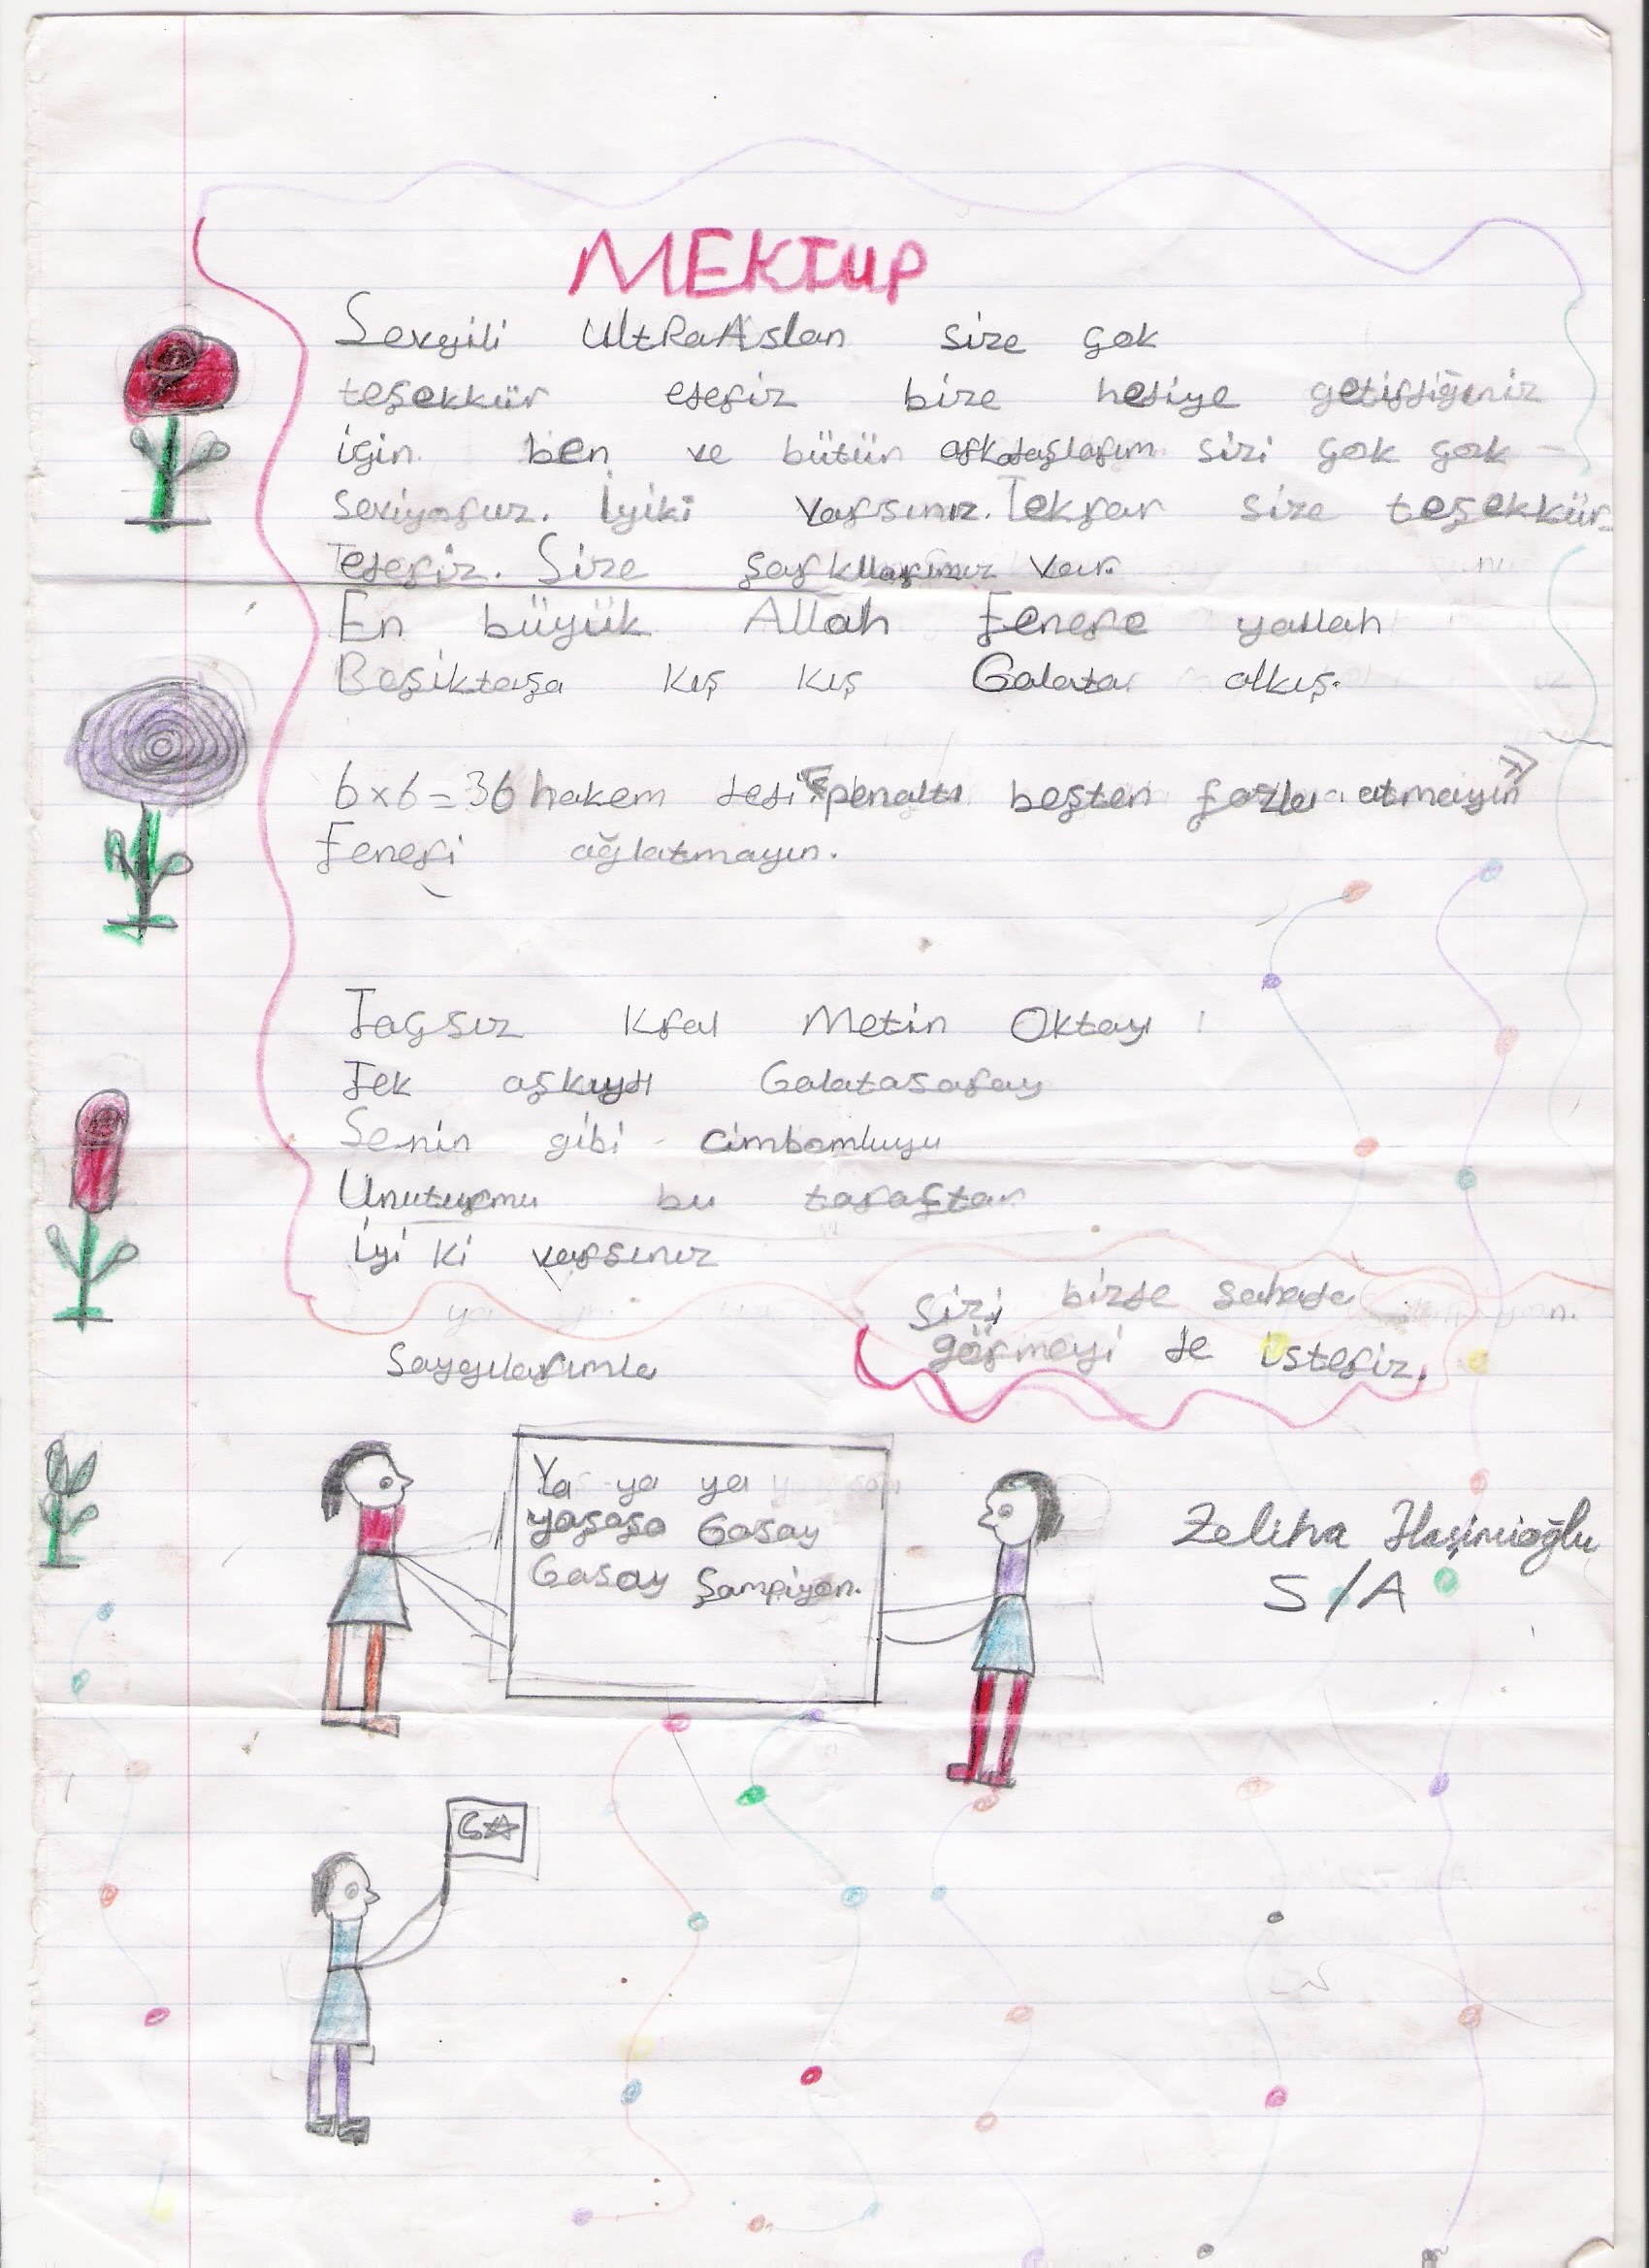 MEKTUP
Sevgili UltRaAslan size çok
teşekkür ederiz bize hediye getirdiğiniz
için ben ve bütün arkadaşlarım sizi çok çok
seviyoruz. İyiki varsınız. Tekrar size teşekkür
ederiz. Size şarkılarımız var.
En büyük Allah Fenere yallah
Beşiktaşa kış kış Galata alkış.
6x6=36 hakem dedi "penaltı beşten fazla atmayın"
Feneri ağlatmayın.
Taçsız Kral Metin Oktayı
Tek aşkıydı Galatasaray
Senin gibi cimbomluyu
Unuturmu bu taraftar
İyi ki varsınız
Sizi birde sahada
görmeyi de isteriz.
Saygılarımla
Ya ya ya
yaşaşa Gasay
Gasay Şampiyon.
Zeliha Haşimioğlu
5/A